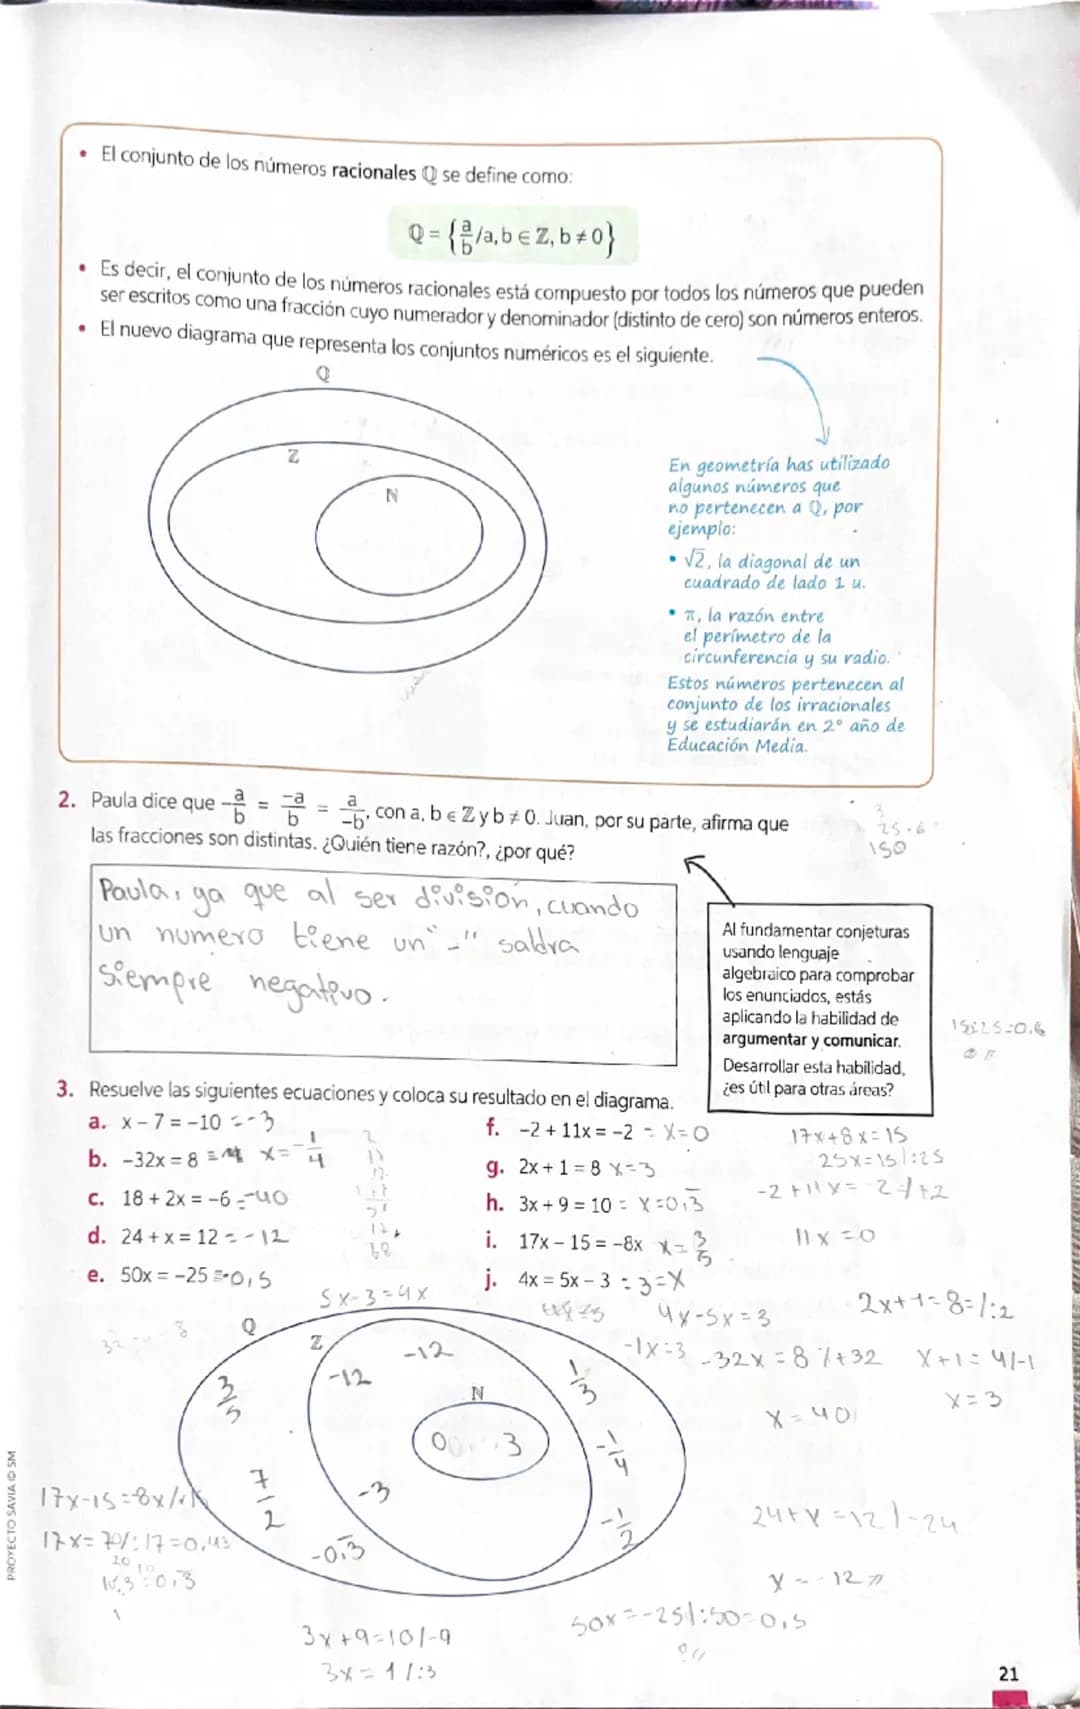 • El conjunto de los números racionales ℚ se define como:
ℚ = {a/b /a,b ∈ ℤ, b ≠ 0}
• Es decir, el conjunto de los números racionales está compuesto por todos los números que pueden
ser escritos como una fracción cuyo numerador y denominador (distinto de cero) son números enteros.
• El nuevo diagrama que representa los conjuntos numéricos es el siguiente.
ℚ
ℤ
ℕ
En geometría has utilizado
algunos números que
no pertenecen a ℚ, por
ejemplo:
• √2, la diagonal de un
cuadrado de lado 1 u.
• π, la razón entre
el perímetro de la
circunferencia y su radio.
Estos números pertenecen al
conjunto de los irracionales
y se estudiarán en 2° año de
Educación Media.
2. Paula dice que -a/b = -a/b = a/-b, con a, b ∈ ℤ y b ≠ 0. Juan, por su parte, afirma que
las fracciones son distintas. ¿Quién tiene razón?, ¿por qué?
25·6
150
Paula, ya que al ser división, cuando
un numero tiene un "-" saldra
siempre negativo.
Al fundamentar conjeturas
usando lenguaje
algebraico para comprobar
los enunciados, estás
aplicando la habilidad de
argumentar y comunicar.
Desarrollar esta habilidad,
¿es útil para otras áreas?
15:25=0,6
3. Resuelve las siguientes ecuaciones y coloca su resultado en el diagrama.
a. x – 7 = –10 = -3
b. –32x = 8 = x = -1/4
c. 18 + 2x = –6 = -40
d. 24 + x = 12 = -12
e. 50x = –25 = -0,5
f. –2 + 11x = –2 = x=0
g. 2x + 1 = 8 x=3
h. 3x + 9 = 10 = x=0,3̅
i. 17x – 15 = –8x x = 3/5
j. 4x = 5x – 3 : 3=x
17x+8x=15
25x=15/:25
-2+11x=-2/+2
11x=0
5x-3=4x
4x-5x=3
-1x=3
2x+1=8=/:2
-32x=8/+32
x+1=4/-1
x=40
x=3
ℚ
ℤ
ℕ
3/5
7/2
-12
-12
-3
-0,3̅
0
3
1/3
-1/4
-1/2
17x-15=8x/
17x=70/:17=0,43
24+x=12/-24
x=-12
3x+9=10/-9
3x=1/:3
50x=-25/:50=0,5
PROYECTO SAVIA © SM
21